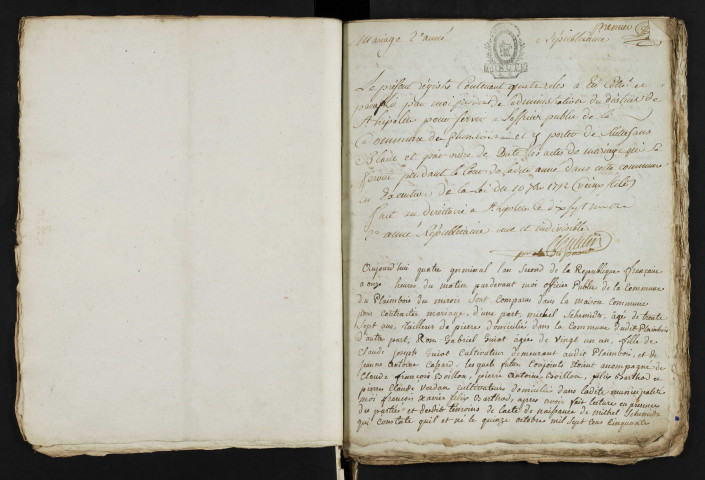 premier
Mariage 2e année Républicaine
Le présent régistre Contenant quatre roles a Eté Cotté et
paraphé par moi président de l'administration du district de
St hipolite pour servir a l'officier public de la
Commune de plaimbois et y porter de suitte sans
Blanc et par ordre de Date les actes de mariage qui se
feront pendant le Cour de ladite année dans cette commune
en Execution de la loi du 20 7bre 1792 (vieux stile)
fait au directoire a St hipolite le
2e année Républicaine une et indivisible
Aujourd'hui quatre germinal l'an second de la République française
a onze heures du matin pardevant moi officier Public de la Commune
du Plaimbois du miroir sont comparus dans la maison Commune
pour contracter mariage, d'une part, michel Schemider, âgé de trente
sept ans, tailleur de pierre domicilié dans la Commune dudit Plaimbois
d'autre part, Rose Gabriel Guiot âgée de vingt un an, fille de
Claude Joseph Guiot Cultivateur demeurant audit Plaimbois, et de
jeanne antoine lesquels futurs Conjoints étoient accompagné de
Claude françois Boillon, pierre antoine Boillon, félix Barthod et
pierre Claude Verdan cultivateurs domicilié dans ladite municipalité
moi françois Xavier félix Barthod, après avoir fait lecture en présence
des parties et desdit témoins de l'acte de naissance de michel Schemider
qui constate qu'il est né le quinze octobre mil sept cens cinquante